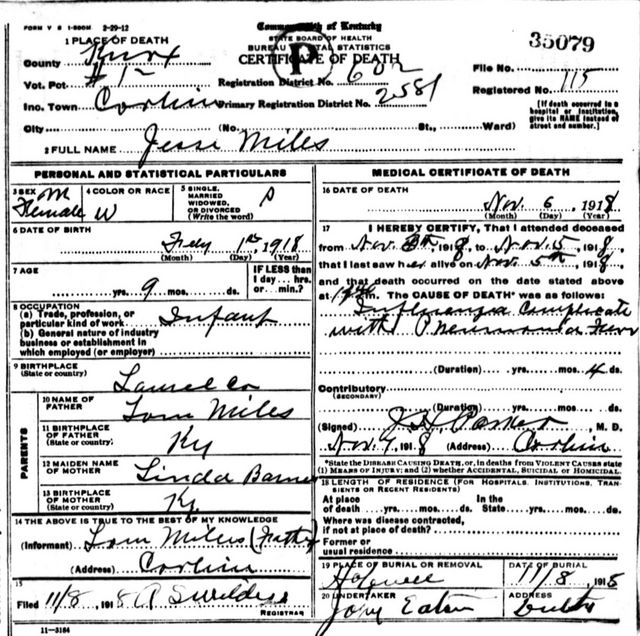 FORM V S 1-500M 2-29-12
Commonwealth of Kentucky
STATE BOARD OF HEALTH
BUREAU VITAL STATISTICS
P
CERTIFICATE OF DEATH
35079
1 PLACE OF DEATH
County Knox
Vot. Pct. #12
Inc. Town Corbin
City (No. St., Ward)
Registration District No. 602
Primary Registration District No. 2581
File No.
Registered No. 115
[If death occurred in a
hospital or institution,
give its NAME instead of
street and number.]
2 FULL NAME Jesse Miles
PERSONAL AND STATISTICAL PARTICULARS
3 SEX M
Female
4 COLOR OR RACE
W
5 SINGLE,
MARRIED
WIDOWED,
OR DIVORCED
(Write the word)
6 DATE OF BIRTH
1st, 1918
(Month) (Day) (Year)
7 AGE
yrs. 9 mos. ds.
IF LESS than
1 day... hrs.
or min.?
8 OCCUPATION
(a) Trade, profession, or
particular kind of work Infant
(b) General nature of industry
business or establishment in
which employed (or employer)
9 BIRTHPLACE
(State or country)
Laurel Co
PARENTS
10 NAME OF
FATHER Tom Miles
11 BIRTHPLACE
OF FATHER
(State or country) Ky
12 MAIDEN NAME
OF MOTHER Linda
13 BIRTHPLACE
OF MOTHER
(State or country) Ky
14 THE ABOVE IS TRUE TO THE BEST OF MY KNOWLEDGE
(Informant) Tom Miles (Father)
(Address) Corbin
15
Filed 11/8, 1918
REGISTRAR
11-3184
MEDICAL CERTIFICATE OF DEATH
16 DATE OF DEATH
Nov. 6, 1918
(Month) (Day) (Year)
17 I HEREBY CERTIFY, That I attended deceased
from Nov. 1918, to Nov. 5, 1918,
that I last saw h alive on Nov. 5th, 1918,
and that death occurred on the date stated above
at m. The CAUSE OF DEATH* was as follows:
Influenza Complicate
with Pneumonia Fever
(Duration) yrs. mos. 4 ds.
Contributory
(SECONDARY)
(Duration) yrs. mos. ds.
(Signed) J. H. Parker, M. D.
Nov. 7, 1918 (Address) Corbin
*State the DISEASE CAUSING DEATH, or, in deaths from VIOLENT CAUSES state
(1) MEANS OF INJURY; and (2) whether ACCIDENTAL, SUICIDAL or HOMICIDAL.
18 LENGTH OF RESIDENCE (FOR HOSPITALS, INSTITUTIONS, TRAN-
SIENTS OR RECENT RESIDENTS)
At place In the
of death yrs. mos. ds. State yrs. mos. ds.
Where was disease contracted,
if not at place of death?
Former or
usual residence
19 PLACE OF BURIAL OR REMOVAL
DATE OF BURIAL
11/8, 1918
20 UNDERTAKER
ADDRESS